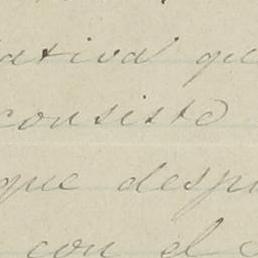 ativa que
consiste
que despu
con el